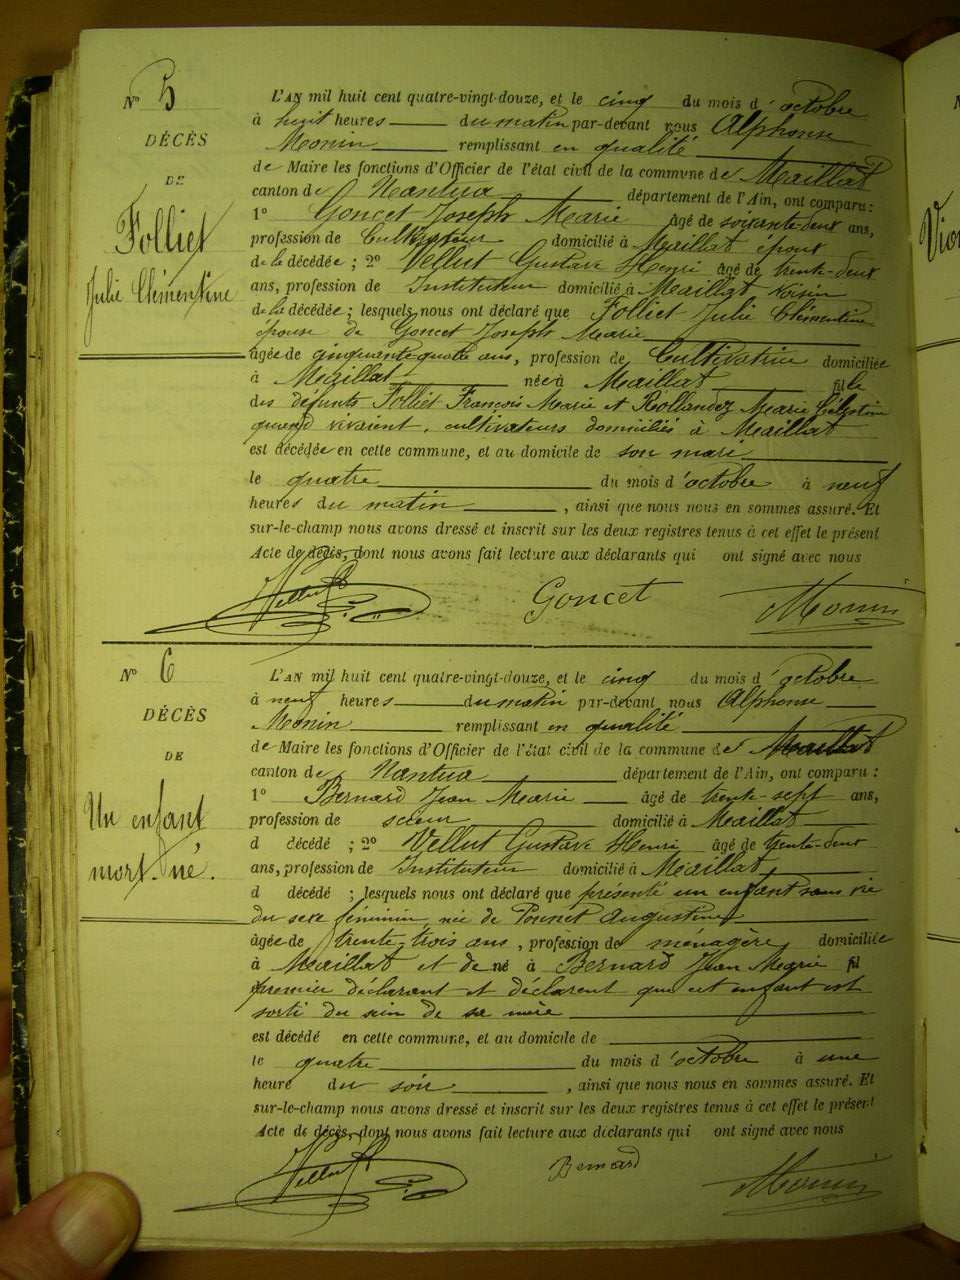 N° 5
DÉCÈS
DE
Folliet
Julie Clémentine
L'AN mil huit cent quatre-vingt-douze, et le cinq du mois d'octobre
à huit heures du matin par-devant nous Alphonse
Monin remplissant en qualité
de Maire les fonctions d'Officier de l'état civil de la commune de Maillat
canton de Nantua département de l'Ain, ont comparu :
1° Goncet Joseph Marie âgé de soixante-deux ans,
profession de Cultivateur domicilié à Maillat époux
de la décédée ; 2° Vellut Gustave Henri âgé de trente-deux
ans, profession de Instituteur domicilié à Maillat voisin
de la décédée ; lesquels nous ont déclaré que Folliet Julie Clémentine
épouse de Goncet Joseph Marie
âgée de cinquante-quatre ans, profession de Cultivatrice domiciliée
à Maillat née à Maillat fille
des défunts Folliet François Marie et Rollandez Marie Célestine
quand vivaient cultivateurs domiciliés à Maillat
est décédée en cette commune, et au domicile de son mari
le quatre du mois d'octobre à neuf
heures du matin, ainsi que nous nous en sommes assuré. Et
sur-le-champ nous avons dressé et inscrit sur les deux registres tenus à cet effet le présent
Acte de décès, dont nous avons fait lecture aux déclarants qui ont signé avec nous
Vellut Goncet Monin
N° 6
DÉCÈS
DE
Un enfant
mort-né.
L'AN mil huit cent quatre-vingt-douze, et le cinq du mois d'octobre
à neuf heures du matin par-devant nous Alphonse
Monin remplissant en qualité
de Maire les fonctions d'Officier de l'état civil de la commune de Maillat
canton de Nantua département de l'Ain, ont comparu :
1° Bernard Jean Marie âgé de trente-sept ans,
profession de scieur domicilié à Maillat
d décédé ; 2° Vellut Gustave Henri âgé de trente-deux
ans, profession de Instituteur domicilié à Maillat
d décédé ; lesquels nous ont déclaré que présenté un enfant sans vie
du sexe féminin, née de Augustine
âgée de trente-trois ans, profession de ménagère domiciliée
à Maillat et de né à Bernard Jean Marie fil
premier déclarant et déclarent que cet enfant est
sorti du sein de sa mère
est décédé en cette commune, et au domicile de
le quatre du mois d'octobre à une
heure du soir, ainsi que nous nous en sommes assuré. Et
sur-le-champ nous avons dressé et inscrit sur les deux registres tenus à cet effet le présent
Acte de décès, dont nous avons fait lecture aux déclarants qui ont signé avec nous
Vellut Bernard Monin